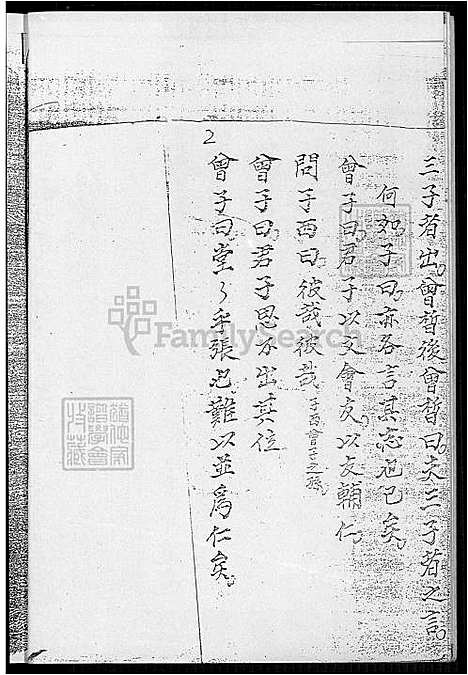 三子者出。曾晳後曾晳曰。夫三子者之言。
何如。子曰。亦各言其志也已矣。
曾子曰。君子以文會友。以友輔仁。
問子西曰。彼哉彼哉 子西曾子之孫。
曾子曰。君子思不出其位
2
曾子曰。堂々乎張也。難以並為仁矣。
FamilySearch